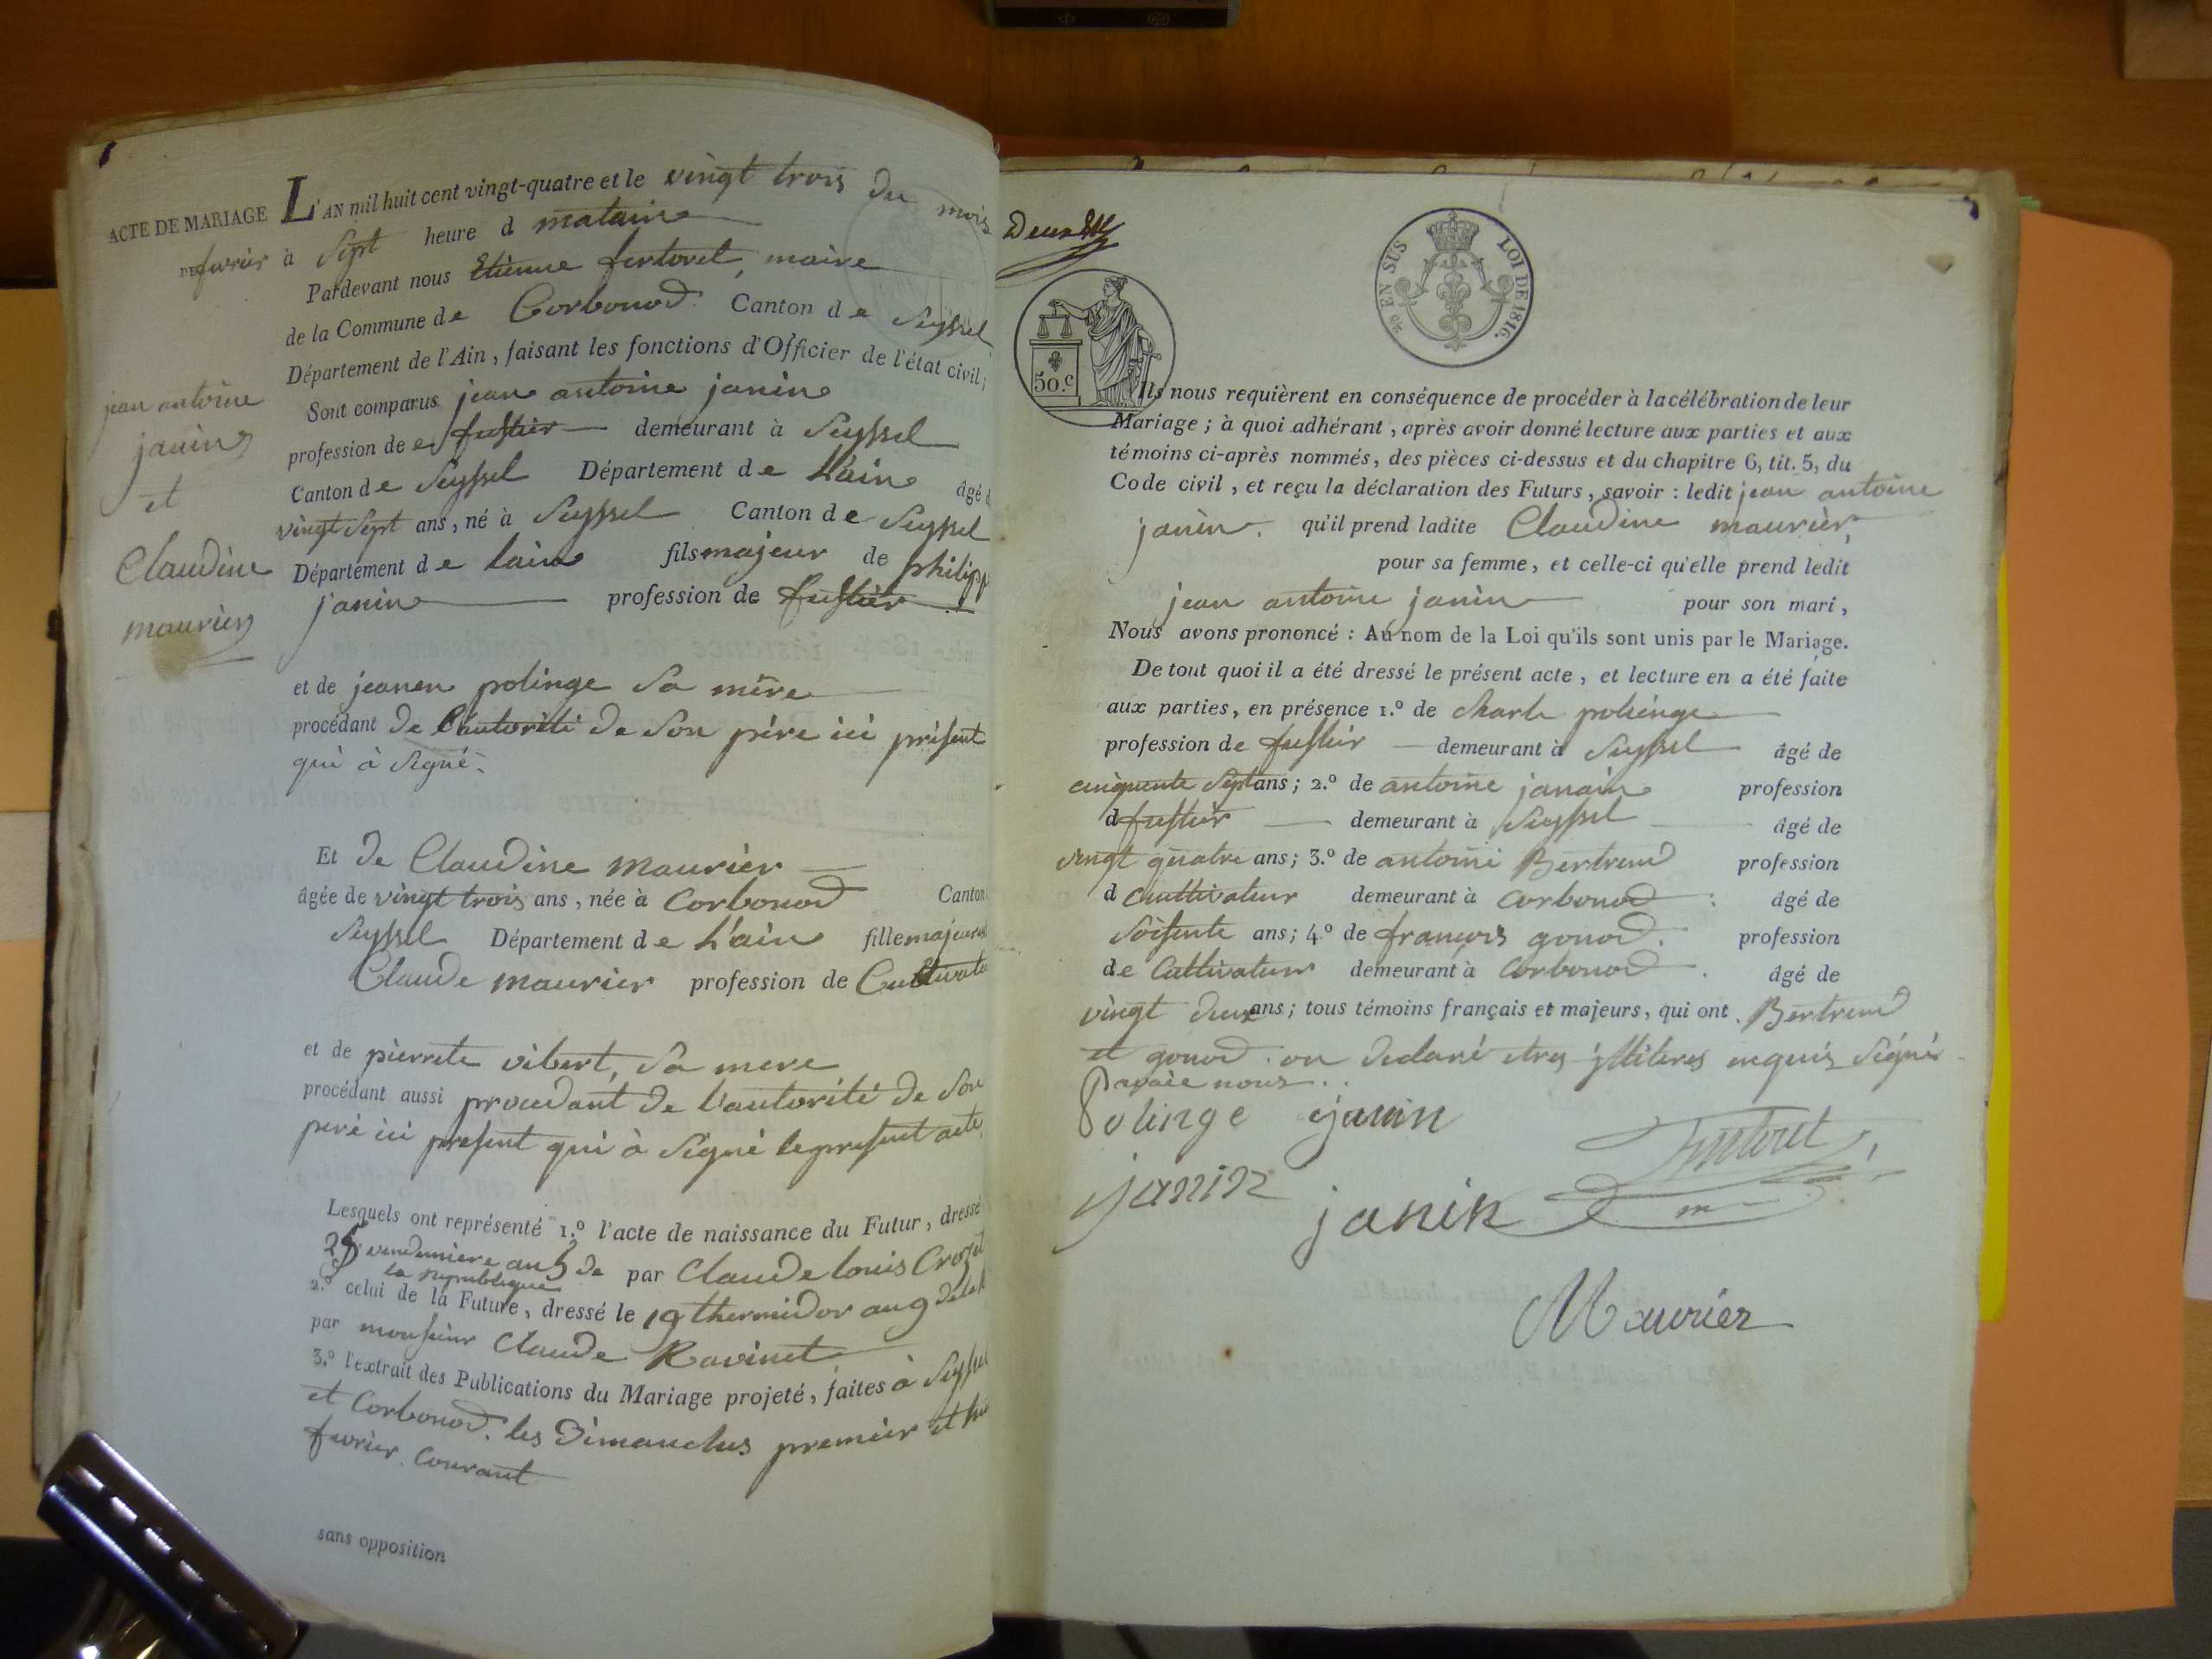 ACTE DE MARIAGE
L'AN mil huit cent vingt-quatre et le vingt trois du mois
DE fevrier à Sept heure d matain
Pardevant nous Etienne fertoret, maire
de la Commune de Corbonod Canton de Seyssel
Département de l'Ain, faisant les fonctions d'Officier de l'état civil;
jean antoine
janin
et
Claudine
maurier
Sont comparus jean antoine janin
profession de fustier demeurant à Seyssel
Canton de Seyssel Département de Lain âgé d
vingt Sept ans, né à Seyssel Canton de Seyssel
Département de lain fils majeur de philipp
janin profession de fustier
et de jeanen polinge Sa mère
procédant de l'autorité de Son père ici présent
qui à Signé.
Et de Claudine maurier
âgée de vingt trois ans, née à Corbonod Canton
Seyssel Département de L'ain fille majeure
Claude maurier profession de Cultivate
et de pierrete vibert, Sa mere
procédant aussi procedant de l'autorité de Son
peré ici present qui à Signé le present acte
Lesquels ont représenté 1.º l'acte de naissance du Futur, dressé
vendemiere an 5 de par Claude louis Crozet
la republique
2.º celui de la Future, dressé le 19 thermidor an 9 de la
par monsieur Claude Ravinet
3.º l'extrait des Publications du Mariage projeté, faites à Seyssel
et Corbonod. les Dimanches premier et
fevrier Courant
sans opposition
EN SUS LOI DE 1816.
50.c
Ils nous requièrent en conséquence de procéder à la célébration de leur
Mariage; à quoi adhérant, après avoir donné lecture aux parties et aux
témoins ci-après nommés, des pièces ci-dessus et du chapitre 6, tit. 5, du
Code civil, et reçu la déclaration des Futurs, savoir: ledit jean antoine
janin. qu'il prend ladite Claudine maurier,
pour sa femme, et celle-ci qu'elle prend ledit
jean antoine janin pour son mari,
Nous avons prononcé: Au nom de la Loi qu'ils sont unis par le Mariage.
De tout quoi il a été dressé le présent acte, et lecture en a été faite
aux parties, en présence 1.º de Charle polienge
profession de fustier demeurant à Seyssel âgé de
cinquente Sept ans; 2.º de antoine janain profession
d fustier demeurant à Seyssel âgé de
vingt quatre ans; 3.º de antoine Bertrend profession
d cultivateur demeurant à Corbonod âgé de
Soisente ans; 4.º de françois gonod. profession
de Cultivateur demeurant à Corbonod. âgé de
vingt deux ans; tous témoins français et majeurs, qui ont. Bertrend
et gonod. on declaré etres illiteres enquis Signé
avaie nous..
Polinge janin
fertoret
janin
janin
Maurier